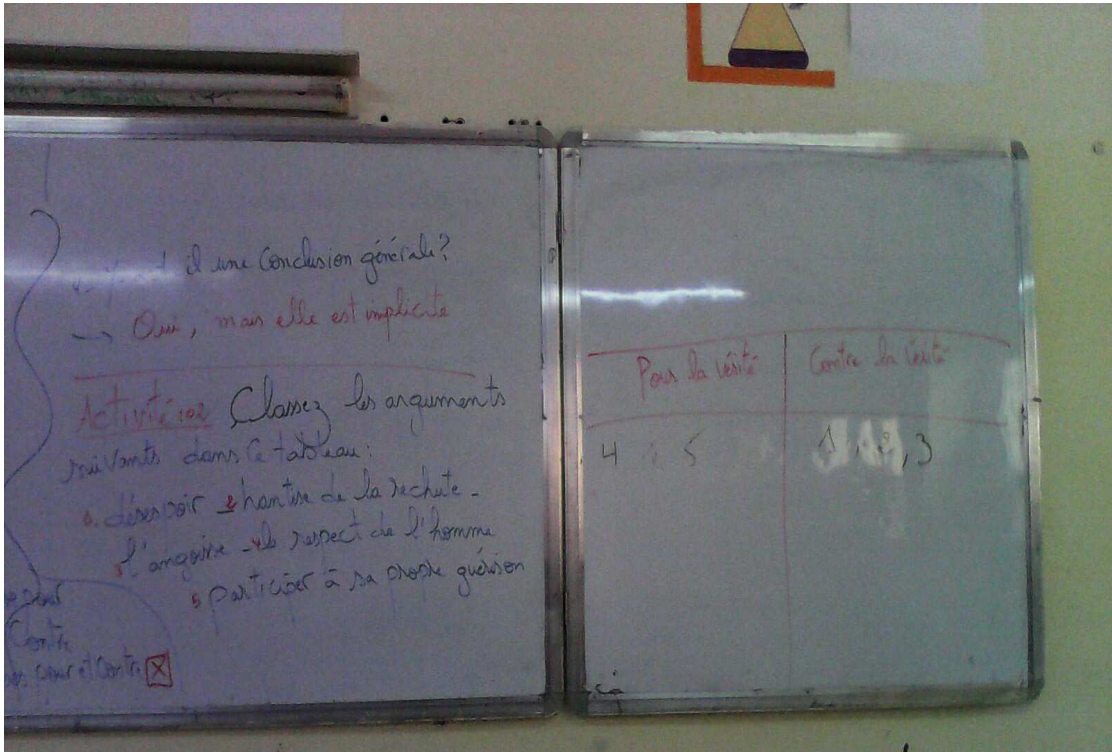 il une Conclusion générale?
→ Oui, mais elle est implicite
Activité Classez les arguments
suivants dans ce tableau:
désespoir - 2 hantise de la rechute -
3 l'angoisse - 4 le respect de l'homme
5 participer à sa propre guérison
pour
Contre
pour et Contre X
Pour la vérité Contre la vérité
4 , 5 1, 2, 3